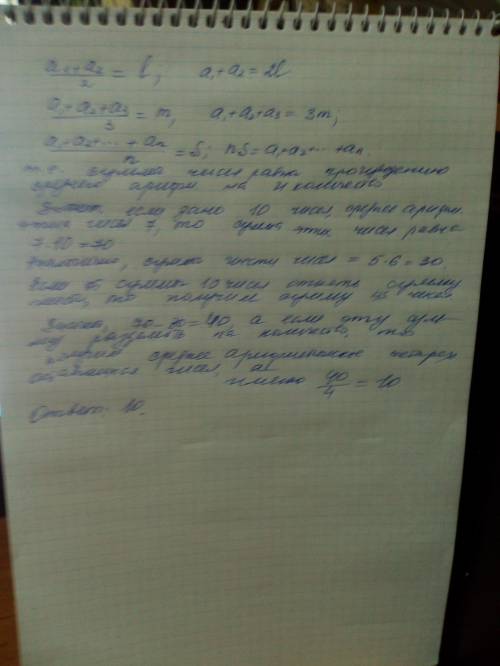 a₁+a₂/2 = l; a₁+a₂ = 2l
a₁+a₂+a₃/3 = m, a₁+a₂+a₃ = 3m;
a₁+a₂+...+aₙ/n = S; nS = a₁+a₂...+aₙ
т.е. сумма чисел равна произведению
среднего арифм на и количество
если дано 10 чисел, среднее арифм.
чисел 7, то сумма этих чисел равна
7·10=70
сумма шести чисел = 5·6=30,
Если от суммы 10 чисел отнять сумму
то получим сумму 4х чисел
70-30=40, а если эту сум-
му разделить на количество, то
получим среднее арифметическое четырех
оставшихся чисел, а
именно 40/4 = 10
Ответ: 10.